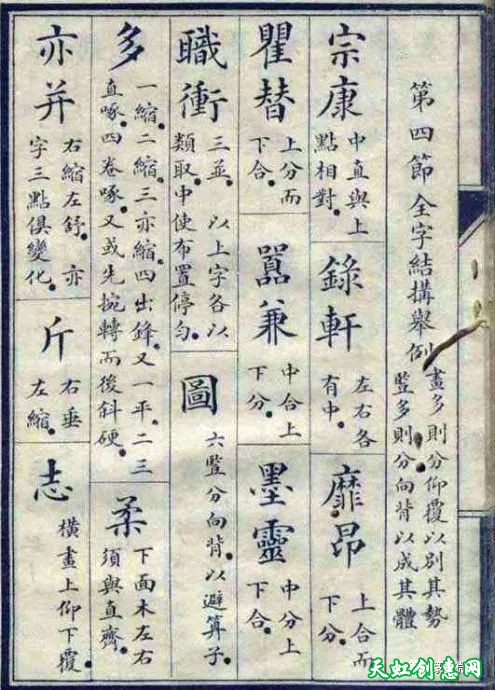 第四節 全字結搆舉例
畫多則分仰覆以別其勢
豎多則分向背以成其體
宗康
中直與上
點相對。
錄軒
左右各
有中。
靡昂
上合而
下分。
瞿替
上分而
下合。
嚚兼
中合上
下分。
墨靈
中分上
下合。
職衝
三並。以上字各以
類取中使布置停勻。
圖
六豎分向背。以避算子。
多
一縮。二縮。三亦縮。四出鋒。又一平。二三
直啄。四卷啄。又或先捥轉而後斜硬。
柔
下面木左右
須與直齊。
亦并
右縮左舒。亦
字三點俱變化。
斤
右垂
左縮。
志
橫畫上仰下覆。
天虹创意网